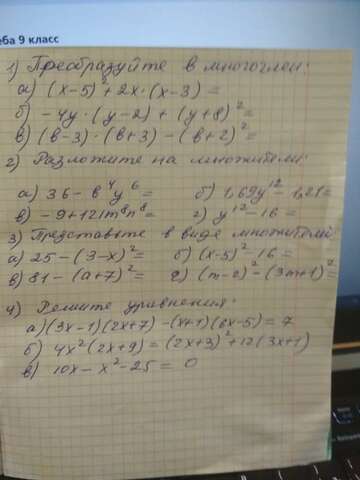 еба 9 класс
1) Преобразуйте в многочлен:
а) (x-5)²+2x·(x-3)=
б) -4y·(y-2)+(y+8)²=
в) (в-3)·(в+3)-(в+2)²=
2) Разложите на множители:
а) 36-в⁴y⁶= б) 1,69y¹²-1,21=
в) -9+121m⁸n⁸= г) y¹²-16=
3) Представьте в виде множителей
а) 25-(3-x)²= б) (x-5)²-16=
в) 81-(a+7)²= г) (m-2)²-(3m+1)²=
4) Решите уравнения:
а) (3x-1)(2x+7)-(x+1)(6x-5)=7
б) 4x²(2x+9)=(2x+3)²+12(3x+1)
в) 10x-x²-25=0